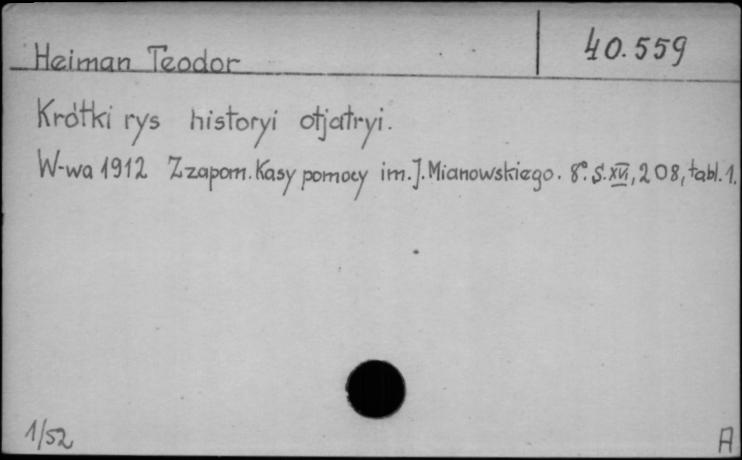 Heiman Teodor 40.559
Krótki rys historyi otjatryi.
W-wa 1912 Z zapom. Kasy pomocy im. J. Mianowskiego. 8° S. XVI, 208, tabl. 1.
1/52 A